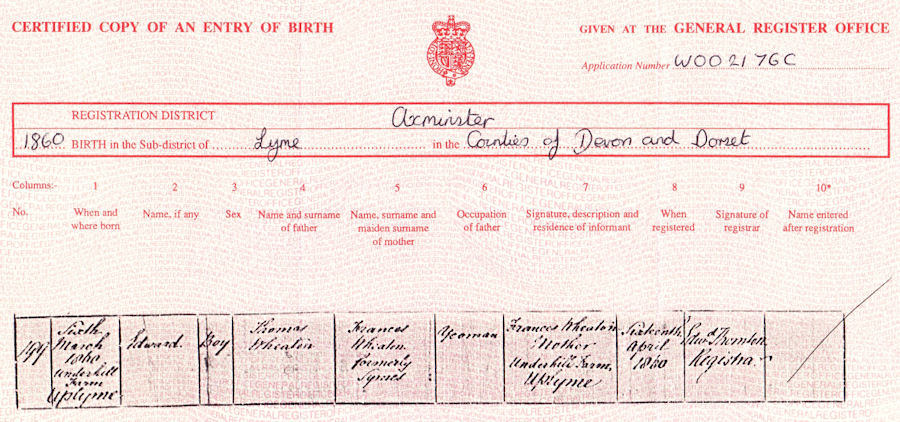 CERTIFIED COPY OF AN ENTRY OF BIRTH
GIVEN AT THE GENERAL REGISTER OFFICE
Application Number W002176C
REGISTRATION DISTRICT Axminster
1860 BIRTH in the Sub-district of Lyme in the Counties of Devon and Dorset
Columns:- 1 2 3 4 5 6 7 8 9 10*
No.
When and
where born
Name, if any
Sex
Name and surname
of father
Name, surname and
maiden surname
of mother
Occupation
of father
Signature, description and
residence of informant
When
registered
Signature of
registrar
Name entered
after registration
Sixth
March
1860
Underhill
Farm
Uplyme
Edward
Boy
Thomas
Wheaton
Frances
Wheaton
formerly
Symes
Yeoman
Frances Wheaton
Mother
Underhill Farm,
Uplyme
Sixteenth
April
1860
Thornton
Registrar